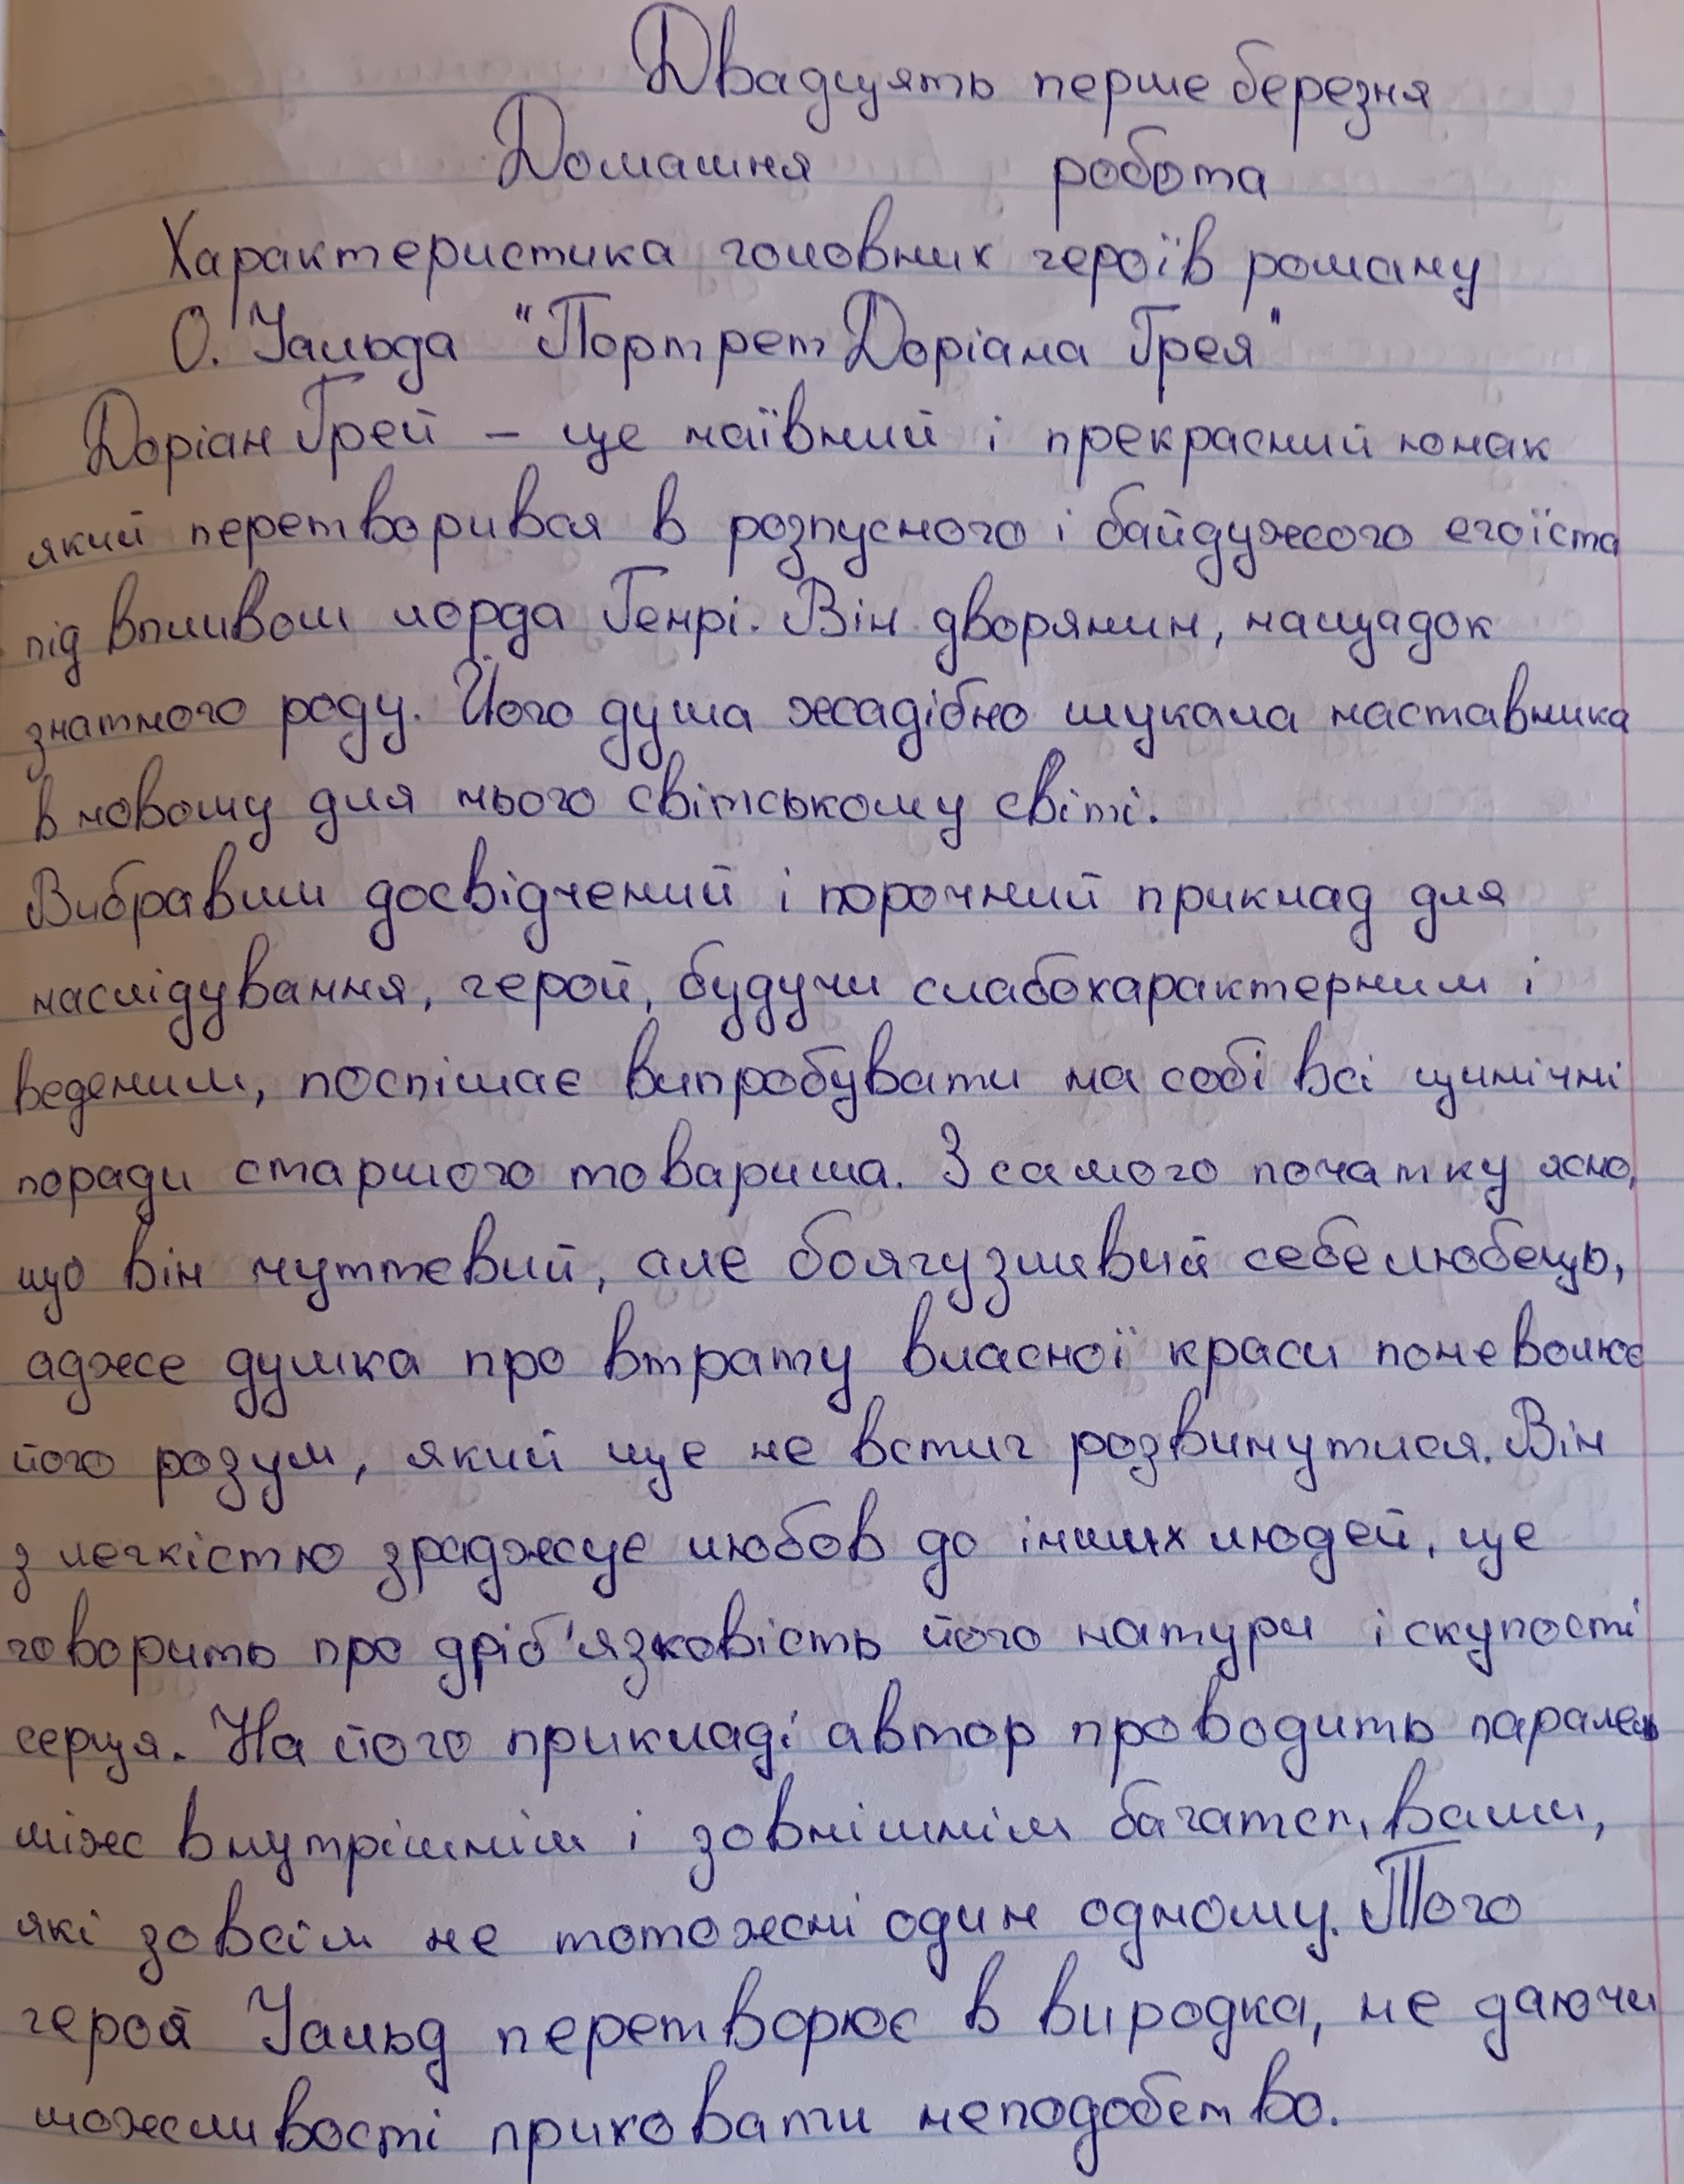 Двадцять перше березня
Домашня робота
Характеристика головних героїв роману
О. Уальда "Портрет Доріана Грея"
Доріан Грей - це наївний і прекрасний юнак
який перетворився в розпусного і байдужого егоїста
під впливом лорда Генрі. Він дворянин, нащадок
знатного роду. Його душа жадібно шукала наставника
в новому для нього світському світі.
Вибравши досвідчений і порочний приклад для
наслідування, герой, будучи слабохарактерним і
веденим, поспішає випробувати на собі всі цинічні
поради старшого товариша. З самого початку ясно,
що він чуттєвий, але боягузливий себелюбець,
адже думка про втрату власної краси поневолює
його розум, який ще не встиг розвинутися. Він
з легкістю зраджує любов до інших людей, це
говорить про дріб'язковість його натури і скупості
серця. На його прикладі автор проводить паралель
між внутрішнім і зовнішнім багатствами,
які зовсім не тотожні один одному. Того
героя Уальд перетворює в виродка, не даючи
можливості приховати неподобство.